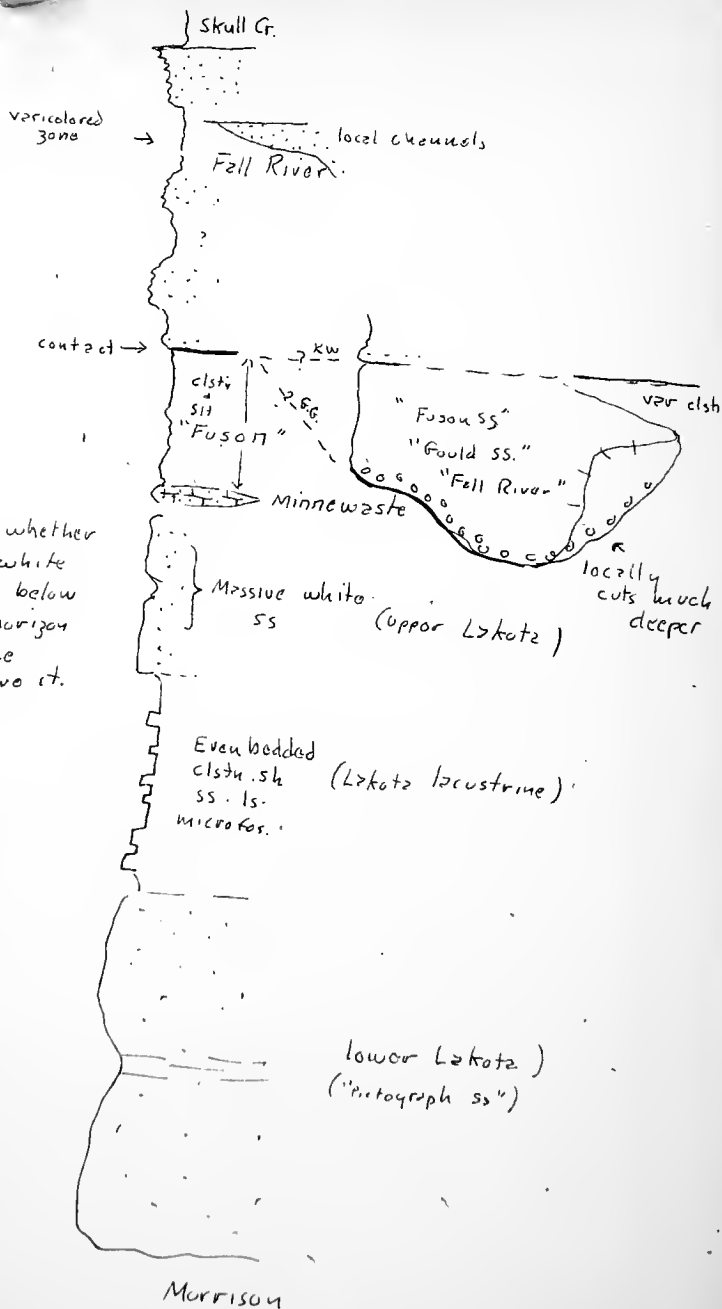 Skull Cr.
varicolored
zone →
local channels
Fall River
?
contact →
? KW
clstn
slt
"Fuson"
? G.G.
var clst
"Fuson ss"
"Gould ss."
"Fall River"
Minnewaste
locally
cuts much
deeper
whether
white
below
horizon
ve it.
Massive white
ss
(upper Lakota)
Even bedded
clstn. sh
ss. ls.
microfos.
(Lakota lacustrine)
lower Lakota)
("Pictograph ss")
Morrison